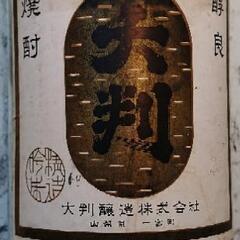 醇良
大判
焼酎
精造吟古
大判醸造株式会社
山梨県 一宮町